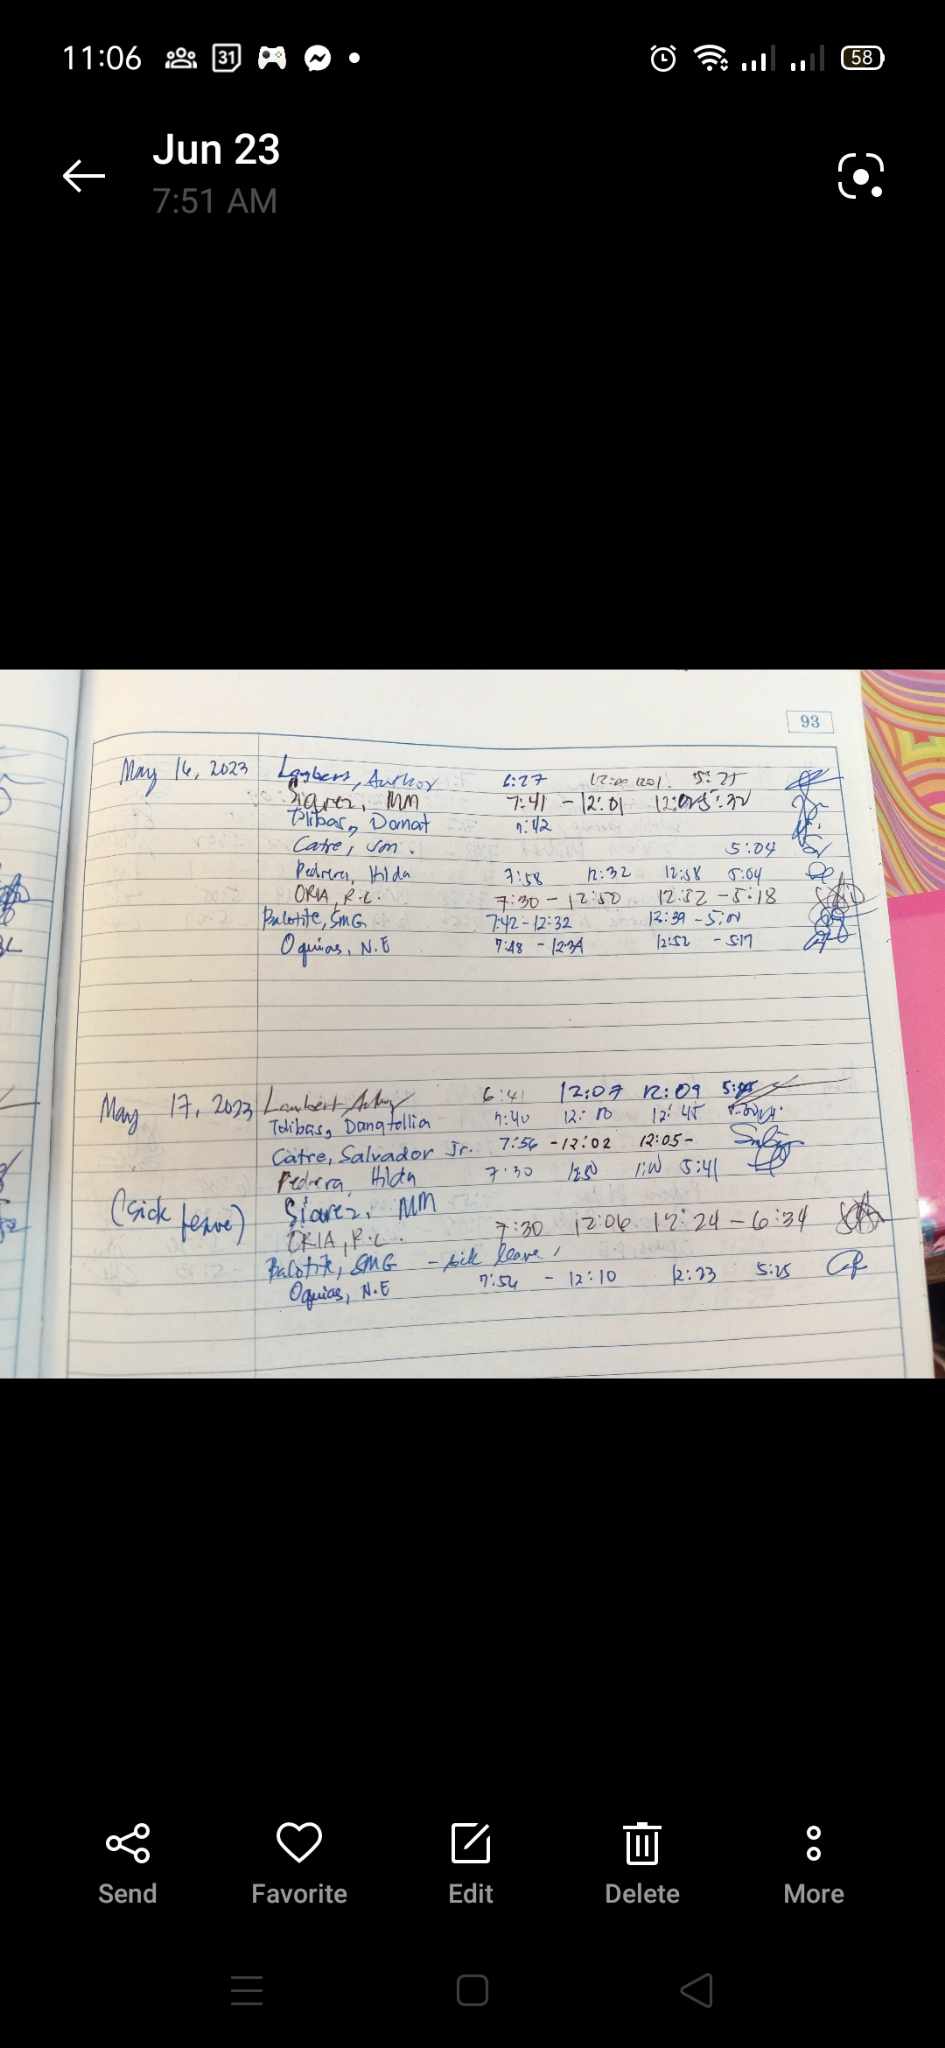 11:06 31 58
Jun 23
7:51 AM
93
May 16, 2023 Lambert, Author 6:27 12:00 1201 5:25
Siarez, MM 7:41 - 12:01 12:02 5:32
Tolibas, Danat 7:42
Catre, Jon. 5:04
Pedrera, Hilda 7:58 12:32 12:38 5:04
ORIA, R.C. 7:30 - 12:50 12:52 - 5:18
Balotite, SMG 7:42 - 12:32 12:39 - 5:01
Oquias, N.E 7:48 - 12:34 12:52 - 5:17
May 17, 2023 Lambert 6:41 12:07 12:09
Tolibas, Danatollia 7:40 12:10 12:45
Catre, Salvador Jr. 7:56 - 12:02 12:05 -
Pedrera, Hilda 7:30 12:50 5:41
(Sick leave) Siarez, MM
ORIA, R.C. 7:30 12:06 12:24 - 6:34
Balotite, SMG - sick leave
Oquias, N.E 7:54 - 12:10 12:23 5:25
Send Favorite Edit Delete More